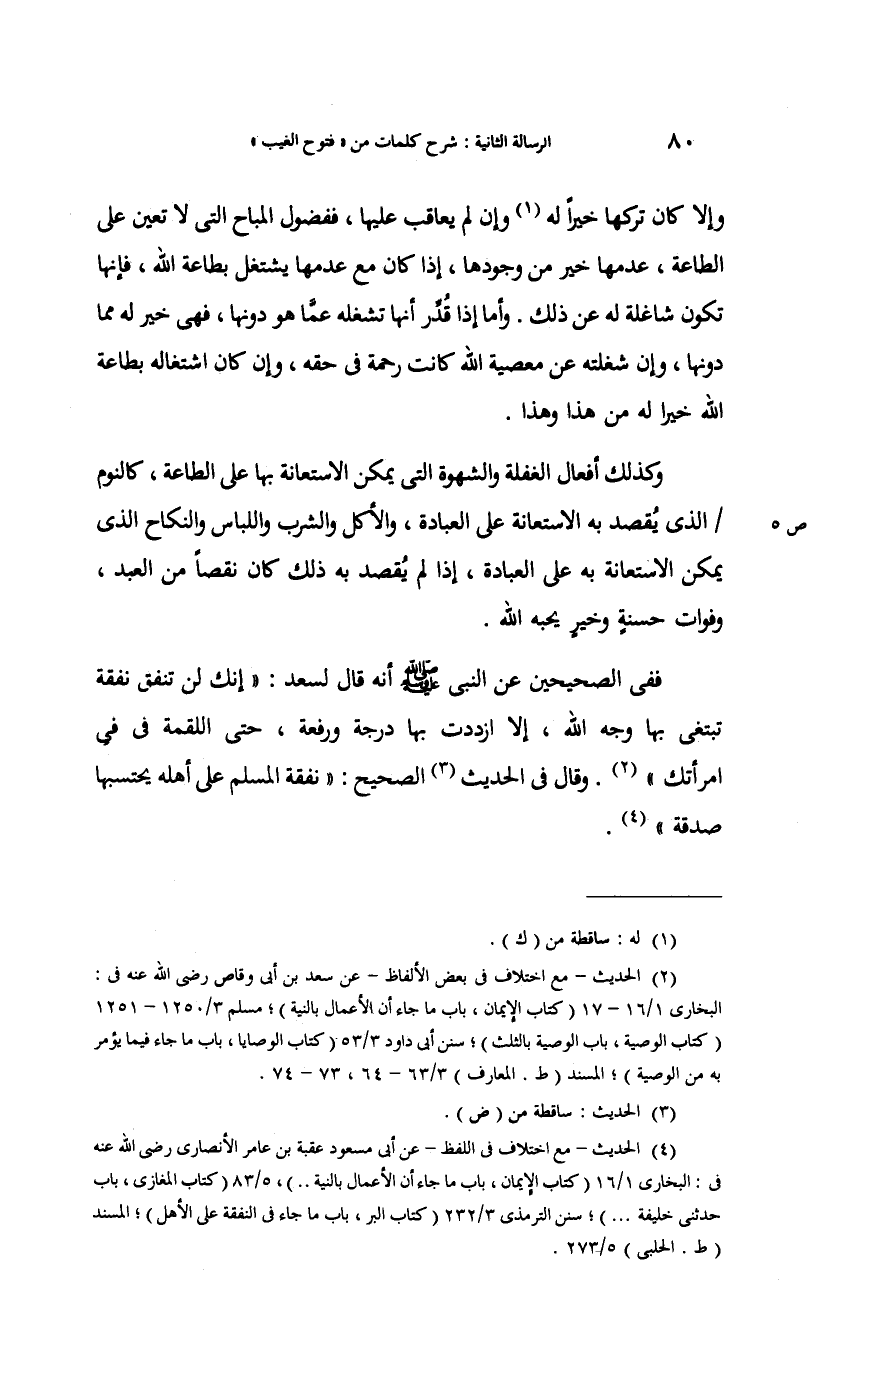 ٨٠ الرسالة الثانية : شرح كلمات من « فتوح الغيب »
وإلا كان تركها خيراً له (١) وإن لم يعاقب عليها ، ففضول المباح التى لا تعين على
الطاعة ، عدمها خير من وجودها ، إذا كان مع عدمها يشتغل بطاعة الله ، فإنها
تكون شاغلة له عن ذلك . وأما إذا قُدِّر أنها تشغله عمَّا هو دونها ، فهى خير له مما
دونها ، وإن شغلته عن معصية الله كانت رحمة فى حقه ، وإن كان اشتغاله بطاعة
الله خيرا له من هذا وهذا .
وكذلك أفعال الغفلة والشهوة التى يمكن الاستعانة بها على الطاعة ، كالنوم
/ الذى يُقصد به الاستعانة على العبادة ، والأكل والشرب واللباس والنكاح الذى ص ٥
يمكن الاستعانة به على العبادة ، إذا لم يُقصد به ذلك كان نقصاً من العبد ،
وفوات حسنةٍ وخيرٍ يحبه الله .
ففى الصحيحين عن النبى ﷺ أنه قال لسعد : « إنك لن تنفق نفقة
تبتغى بها وجه الله ، إلا ازددت بها درجة ورفعة ، حتى اللقمة فى فِي
امرأتك » (٢) . وقال فى الحديث (٣) الصحيح : « نفقة المسلم على أهله يحتسبها
صدقة » (٤) .
(١) له : ساقطة من ( ك ) .
(٢) الحديث – مع اختلاف فى بعض الألفاظ – عن سعد بن أبى وقاص رضى الله عنه فى :
البخارى ١٦/١ – ١٧ ( كتاب الإيمان ، باب ما جاء أن الأعمال بالنية ) ؛ مسلم ١٢٥٠/٣ – ١٢٥١
( كتاب الوصية ، باب الوصية بالثلث ) ؛ سنن أبى داود ٥٣/٣ ( كتاب الوصايا ، باب ما جاء فيما يؤمر
به من الوصية ) ؛ المسند ( ط . المعارف ) ٦٣/٣ – ٦٤ ، ٧٣ – ٧٤ .
(٣) الحديث : ساقطة من ( ض ) .
(٤) الحديث – مع اختلاف فى اللفظ – عن أبى مسعود عقبة بن عامر الأنصارى رضى الله عنه
فى : البخارى ١٦/١ ( كتاب الإيمان ، باب ما جاء أن الأعمال بالنية .. ) ، ٨٣/٥ ( كتاب المغازى ، باب
حدثنى خليفة ... ) ؛ سنن الترمذى ٢٣٢/٣ ( كتاب البر ، باب ما جاء فى النفقة على الأهل ) ؛ المسند
( ط . الحلبى ) ٢٧٣/٥ .